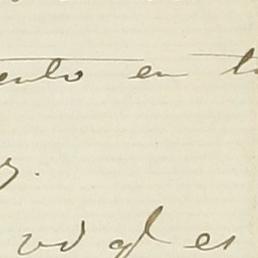 ento en t
s.
vd qe es